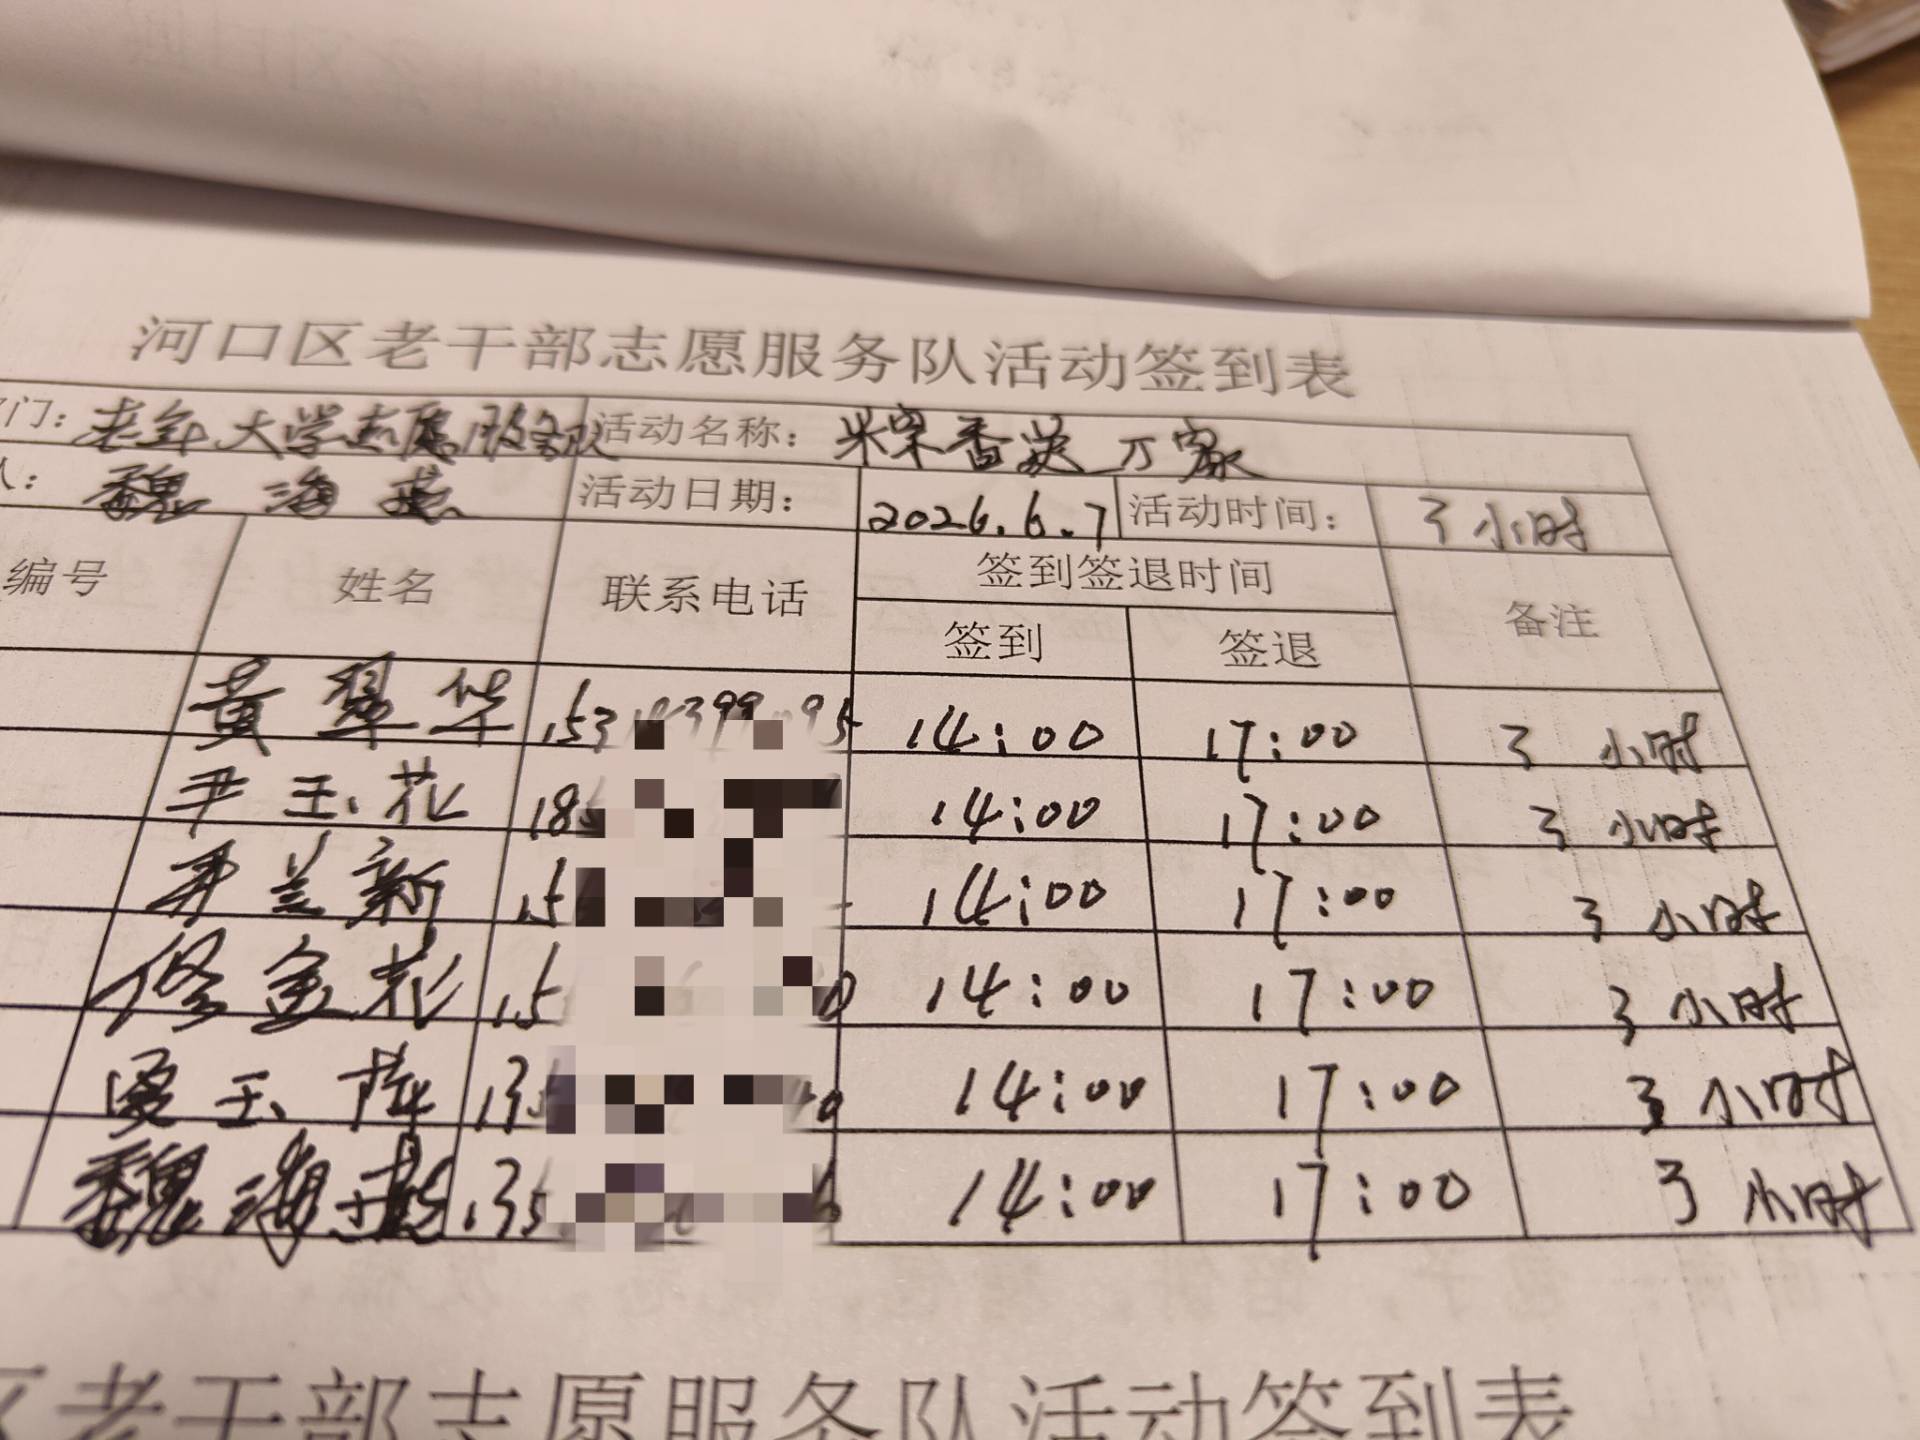 河口区老干部志愿服务队活动签到表
门： 老年大学志愿服务队 活动名称： 香送万家
人： 魏海燕 活动日期： 2026.6.7 活动时间： 3小时
编号 姓名 联系电话 签到签退时间 备注
签到 签退
黄翠华 14:00 17:00 3小时
尹玉花 14:00 17:00 3小时
尹兰新 14:00 17:00 3小时
修金花 14:00 17:00 3小时
玉萍 14:00 17:00 3小时
魏海燕 14:00 17:00 3小时
区老干部志愿服务队活动签到表